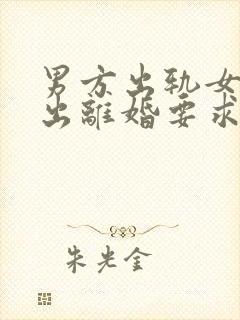 男方出轨女
出離婚要求
朱光金